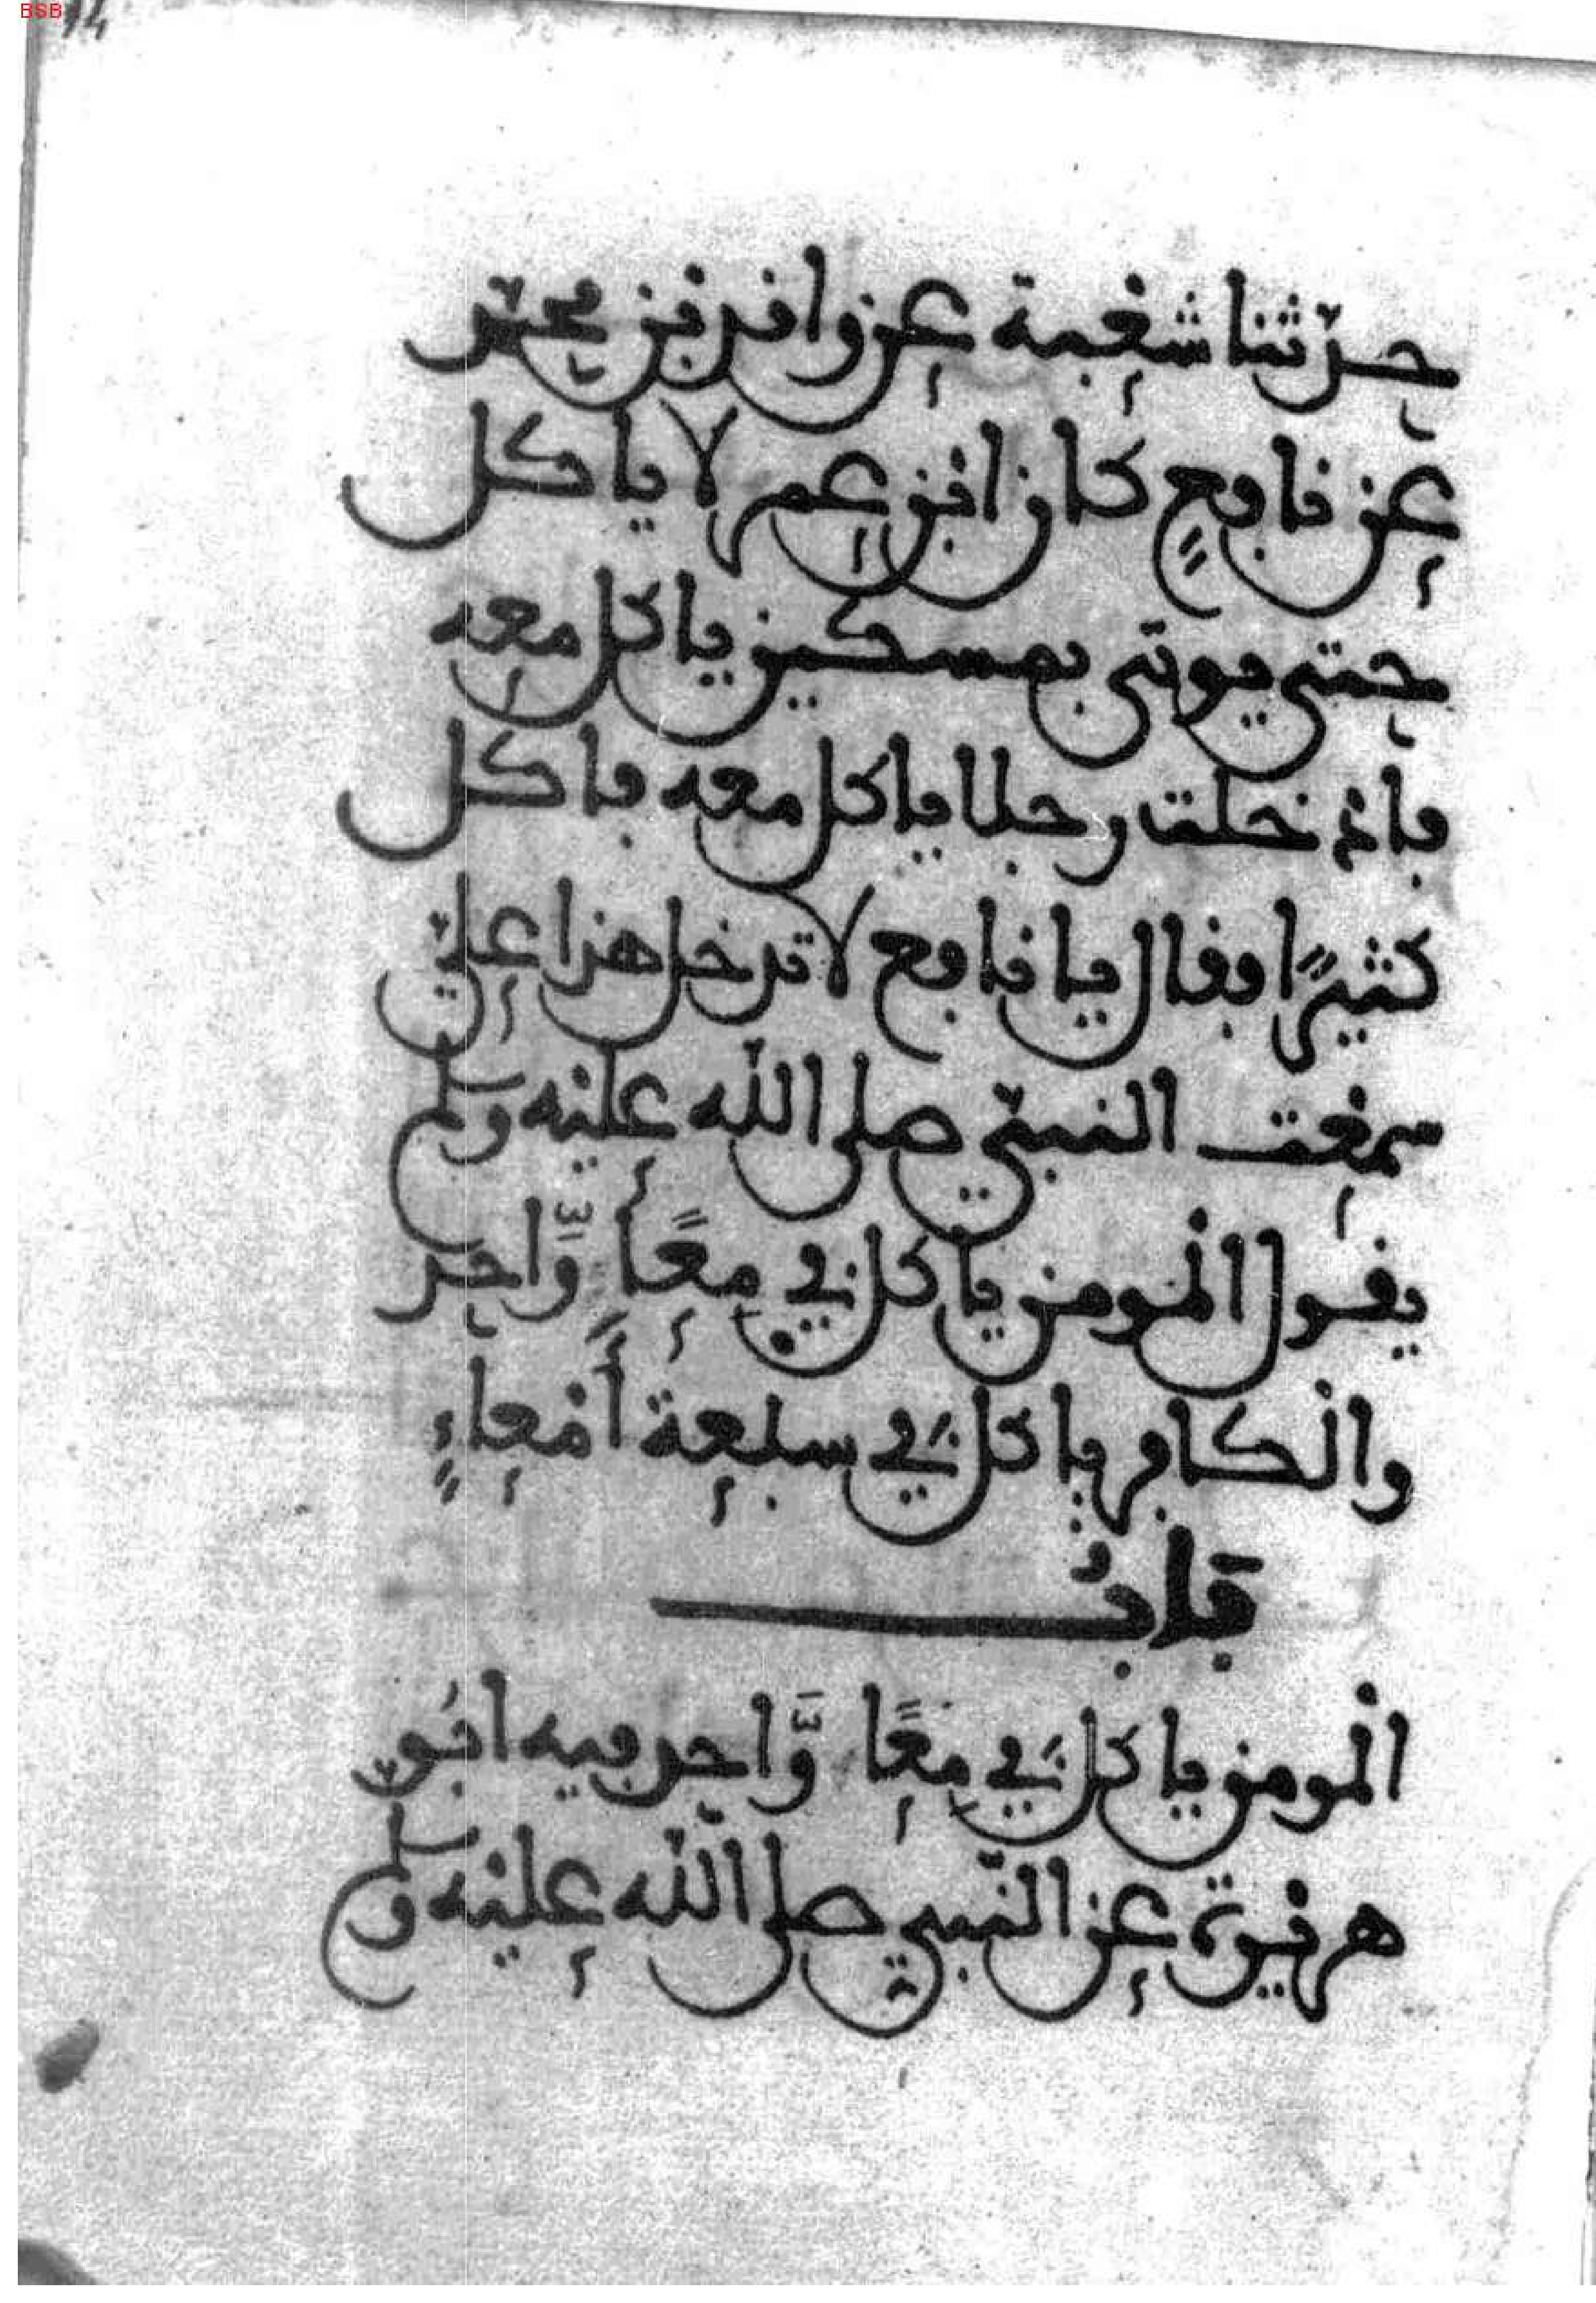 BSB
14
حدّثنا شعبة عن وافد بن محمّد
عن نافعٍ كان ابن عمر لا ياكل
حتى يوتى بمسكين ياكل معه
فادخلت رجلا ياكل معه فاكل
كثيرًا وفال يا نافع لا تدخل هذا عليّ
سمعت النبيّ صلى الله عليه وسلم
يفول المومن ياكل في معًا وّاحد
والكافر ياكل في سبعة أمعاءٍ
بابُ
المومن ياكل في معًا وّاحد فيه ابو
هريرة عن النبي صلى الله عليه وسلم